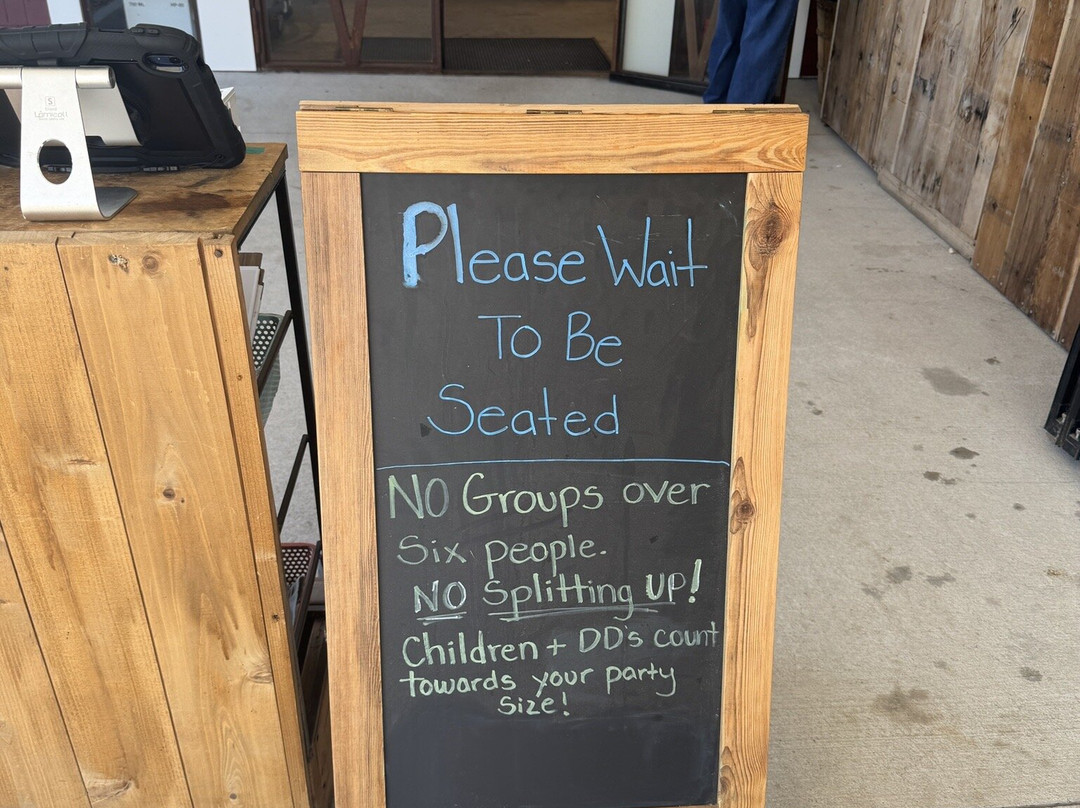 Please Wait
To Be
Seated
NO Groups over
Six people.
NO Splitting up!
Children + DD's count
towards your party
size!